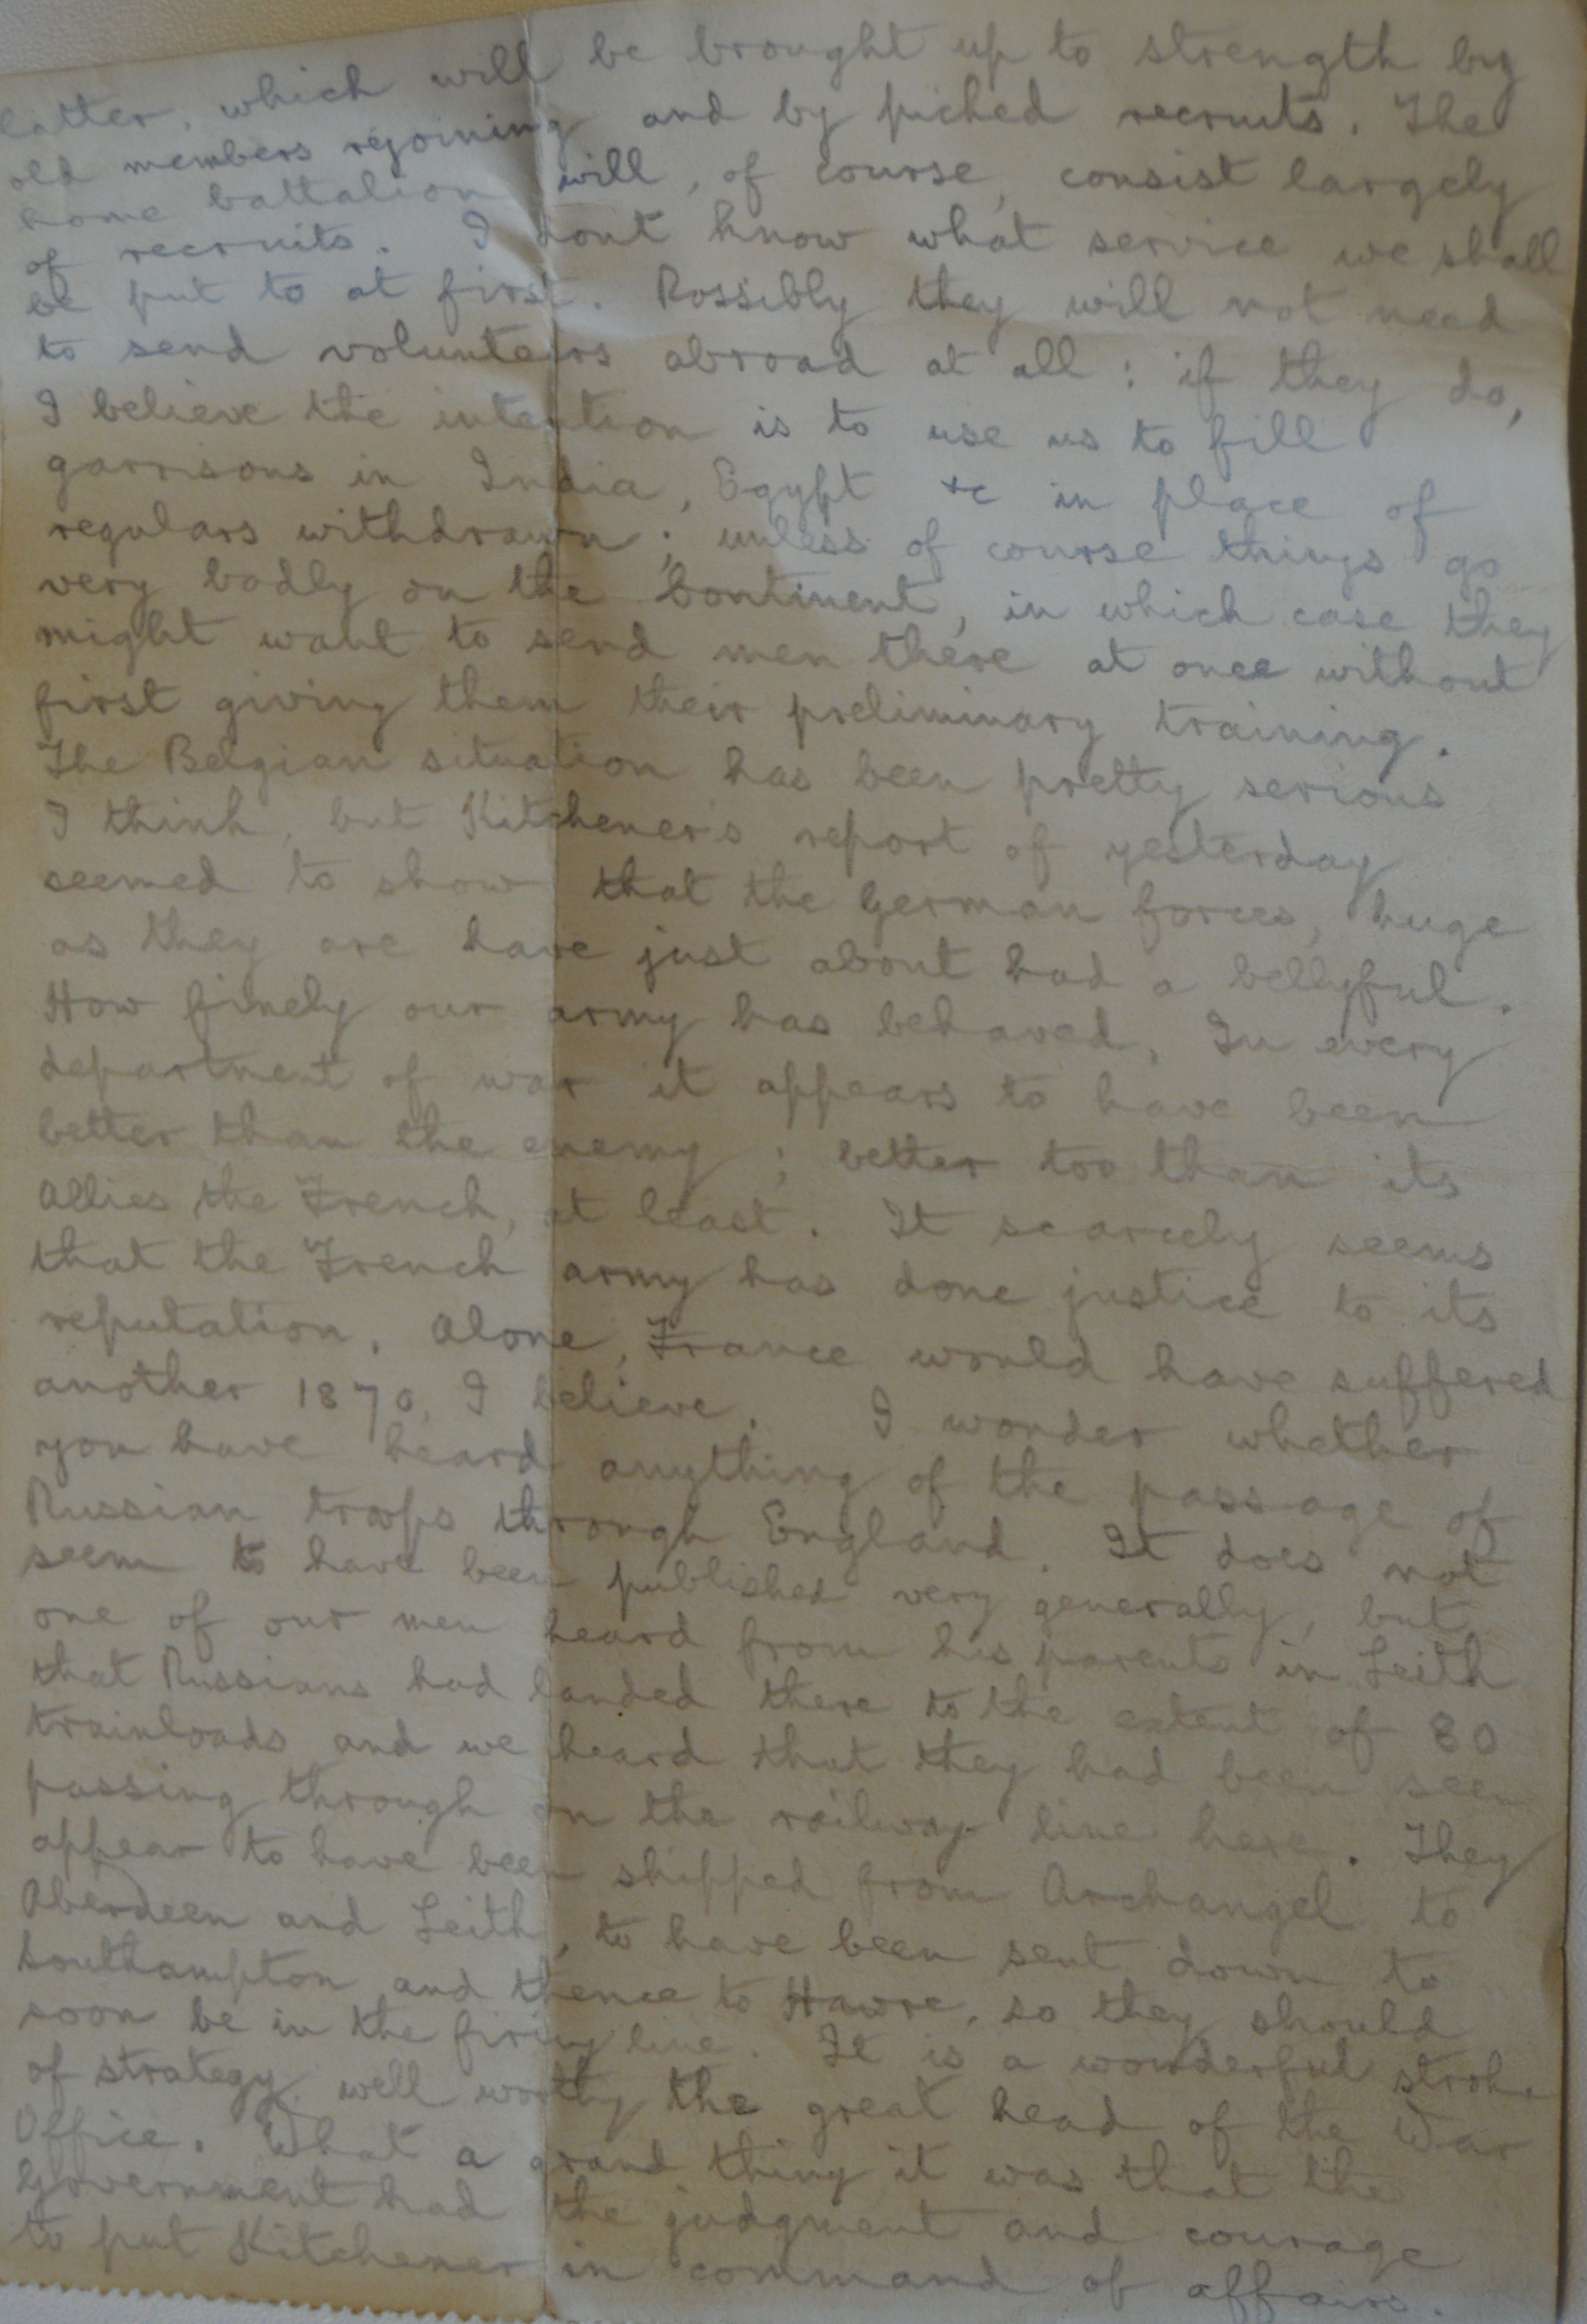 latter, which will be brought up to strength by
old members rejoining and by picked recruits. The
home battalion will, of course, consist largely
of recruits. I dont know what service we shall
be put to at first. Possibly they will not need
to send volunteers abroad at all : if they do,
I believe the intention is to use us to fill
garrisons in India, Egypt &c in place of
regulars withdrawn ; unless of course things go
very badly on the Continent, in which case they
might want to send men there at once without
first giving them their preliminary training.
The Belgian situation has been pretty serious
I think, but Kitchener's report of yesterday
seemed to show that the German forces, huge
as they are have just about had a bellyful.
How finely our army has behaved. In every
department of war it appears to have been
better than the enemy ; better too than its
Allies the French, at least. It scarcely seems
that the French army has done justice to its
reputation. Alone, France would have suffered
another 1870, I believe. I wonder whether
you have heard anything of the passage of
Russian troops through England. It does not
seem to have been published very generally, but
one of our men heard from his parents in Leith
that Russians had landed there to the extent of 80
trainloads and we heard that they had been seen
passing through on the railway line here. They
appear to have been shipped from Archangel to
Aberdeen and Leith, to have been sent down to
Southampton and thence to Havre, so they should
soon be in the firing line. It is a wonderful stroke
of strategy, well worthy the great head of the War
Office. What a grand thing it was that the
Government had the judgment and courage
to put Kitchener in command of affairs.